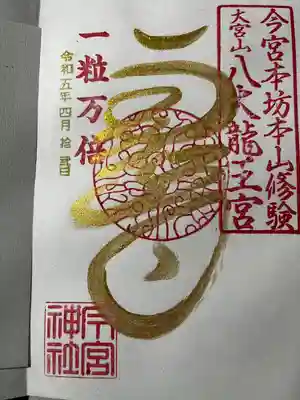 今宮本坊本山修験
大宮山
八大龍王宮
一粒万倍
令和五年四月拾弐日
今宮
神社